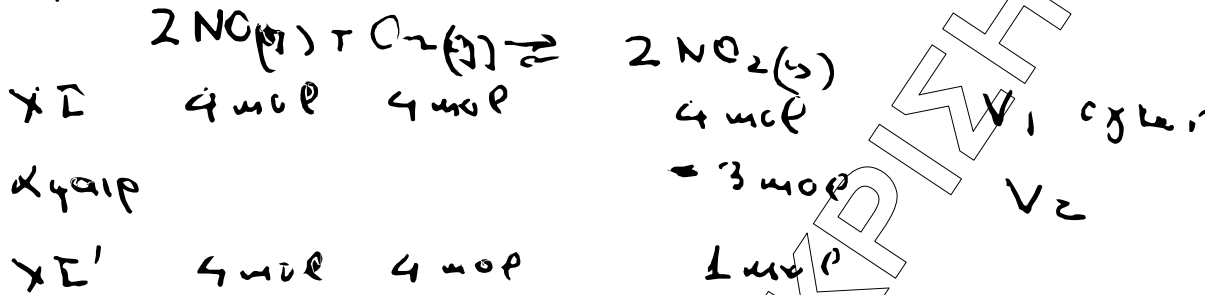 2 NO(g) + O2(g) ⇌ 2 NO2(g)
ΧΙ 4 mol 4 mol 4 mol V1
αφαιρ - 3 mol V2
ΧΙ' 4 mol 4 mol 1 mol
ΚΡΙΣΗ